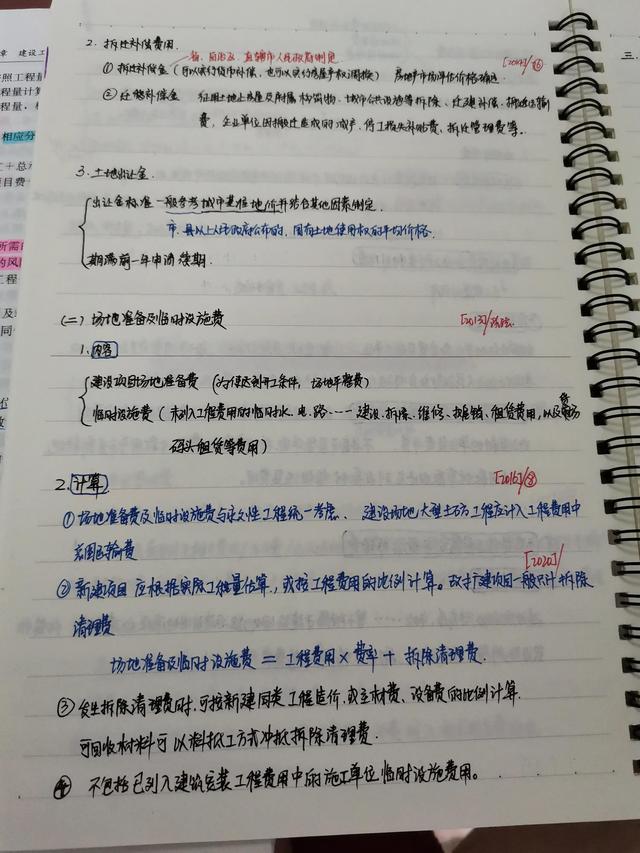 章 建设工
2. 拆迁补偿费用
省、自治区、直辖市人民政府制定
① 拆迁补偿金（可以实行货币补偿，也可以实行房屋产权调换） 房地产市场评估价格确定
② 迁移补偿金 征用土地上房屋及附属构筑物、城市公共设施等拆除、迁建补偿、搬迁运输
费，企业单位因搬迁造成的减产、停工损失补贴费、拆迁管理费等。
3. 土地出让金
出让金标准 一般参考城市基准地价并结合其他因素制定.
市、县以上人民政府公布的，国有土地使用权的平均价格.
期满前一年申请续期.
(二) 场地准备及临时设施费
[2013]
1. 内容
建设项目场地准备费 （为使达到开工条件，场地平整费）
临时设施费（未列入工程费用的临时水、电、路…… 建设、拆除、维修、摊销、租赁费用，以及货场
码头租赁等费用）
2. 计算
[2016]
① 场地准备费及临时设施费与永久性工程统一考虑、 建设场地大型土石方工程应计入工程费用中
总图运输费
[2020]
② 新建项目 应根据实际工程量估算，或按工程费用的比例计算。改扩建项目一般只计拆除
清理费
场地准备及临时设施费 = 工程费用 × 费率 + 拆除清理费.
③ 发生拆除清理费时，可按新建同类工程造价，或主材费、设备费的比例计算.
可回收材料可以料抵工方式冲抵拆除清理费.
④ 不包括已列入建筑安装工程费用中的施工单位临时设施费用。